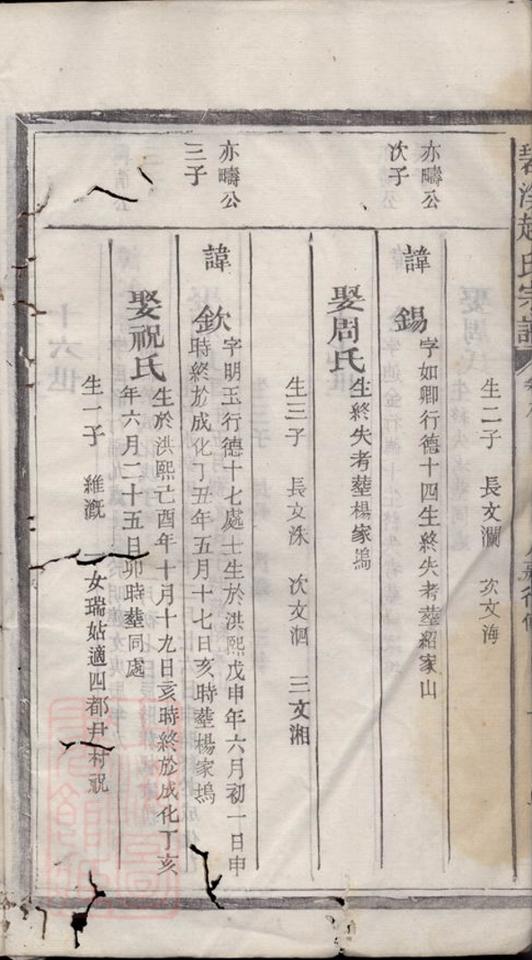 碧溪趙氏宗譜
生二子 長文瀾 次文海
亦疇公
次子
諱錫
字如卿行德十四生終失考塟紹家山
娶周氏
生終失考塟楊家塢
生三子 長文洙 次文洄 三文湘
亦疇公
三子
諱欽
字明玉行德十七處士生於洪熙戊申年六月初一日申
時終於成化丁丑年五月十七日亥時塟楊家塢
娶祝氏
生於洪熙己酉年十月十九日亥時終於成化丁亥
年六月二十五日卯時塟同處
生一子 維漑 一女瑞姑適四都尹村祝